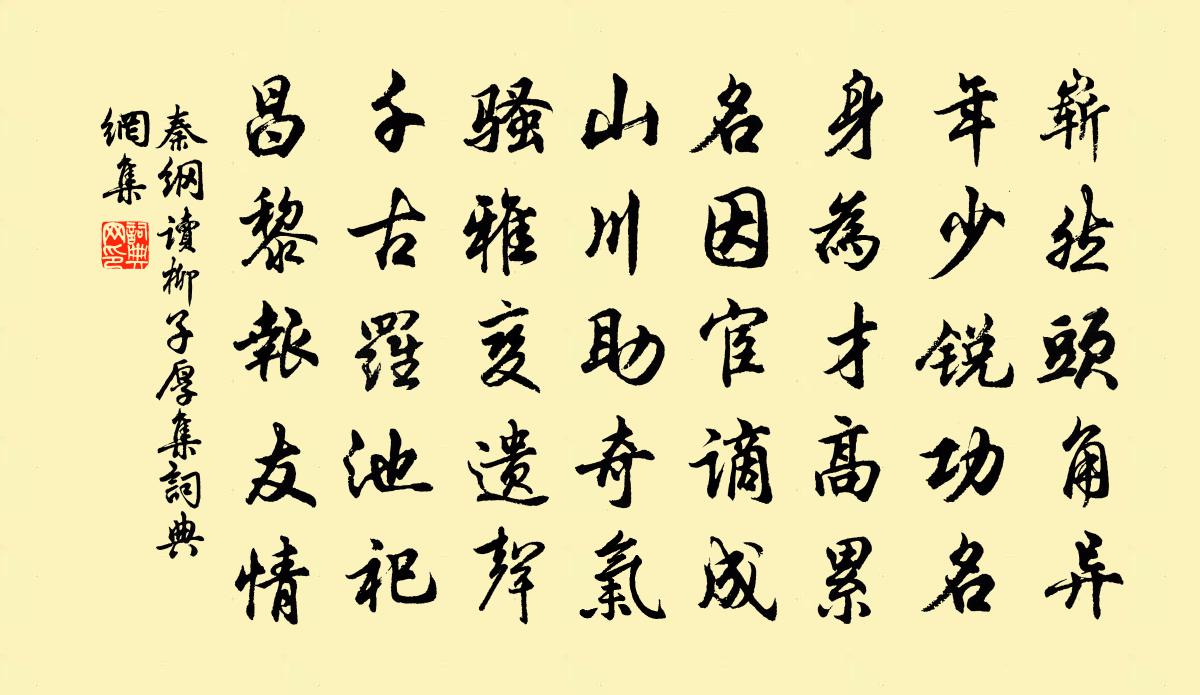 嶄然頭角异
年少銳功名
身為才高累
名因宦謫成
山川助奇氣
騷雅变遗聲
千古羅池祀
昌黎報友情
秦綱讀柳子厚集詞典
網集
詞典
网印